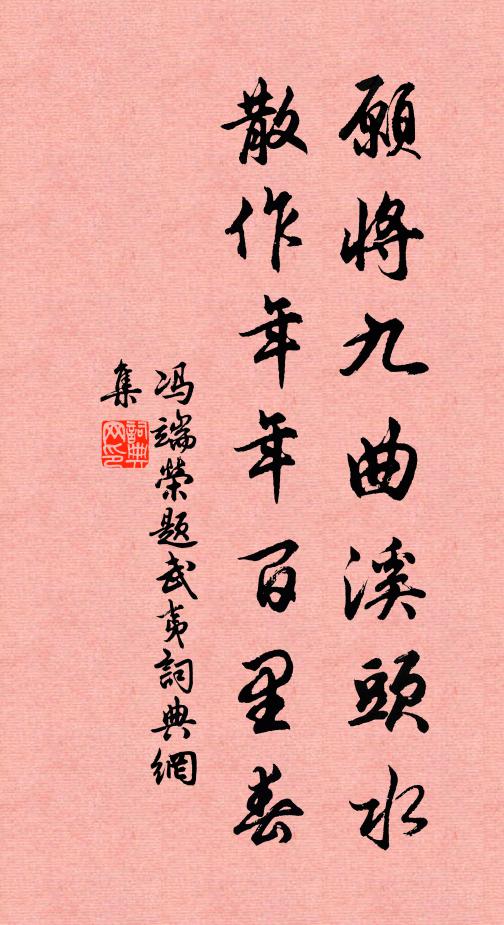 願將九曲溪頭水
散作年年百里春
冯端榮題武夷詞典網
集
詞典
网印